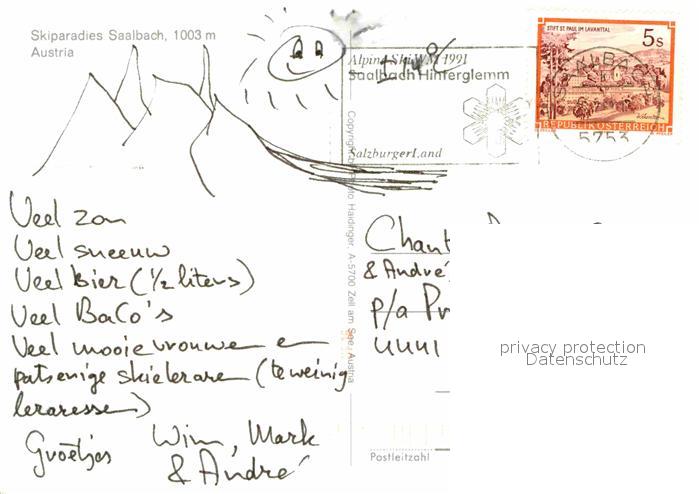 Skiparadies Saalbach, 1003 m
Austria
Alpine Ski WM 1991
Saalbach Hinterglemm
SalzburgerLand
STIFT ST. PAUL IM LAVANTTAL
5s
REPUBLIK ÖSTERREICH
5753
Veel zon
Veel sneeuw
Veel bier (1/2 liters)
Veel BaCo's
Veel mooie vrouwen en
patsenige skieleraren (te weinig
leraressen)
Groetjes Wim, Mark
& André
Copyright by Foto Haidinger, A-5700 Zell am See, Austria
Chant
& André
p/a Pr
4441
privacy protection
Datenschutz
Postleitzahl